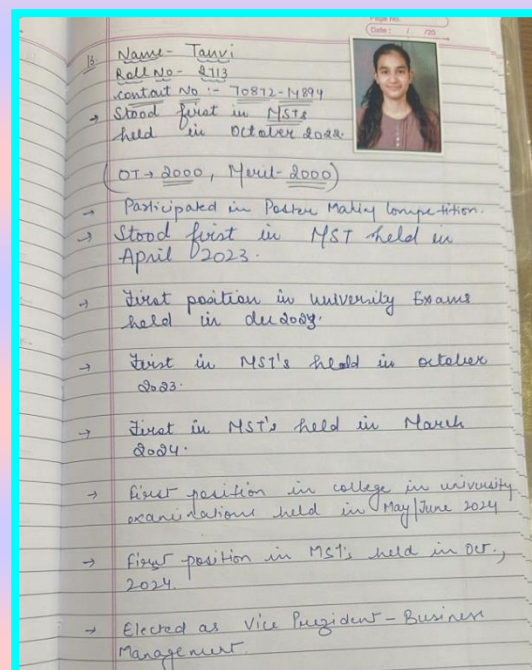 Page No.
Date: / /20
13. Name- Tanvi
Roll No- 2713
contact No :- 70872-14894
→ Stood first in MSTs
held in October 2022.
(OT → 2000, Merit- 2000)
→ Participated in Poster Making Competition.
→ Stood first in MST held in
April 2023.
→ First position in university Exams
held in dec 2023.
→ First in MST's held in october
2023.
→ First in MST's held in March
2024.
→ First position in college in university
examinations held in May/June 2024
→ First position in MST's held in Oct.,
2024.
→ Elected as Vice President - Business
Management.